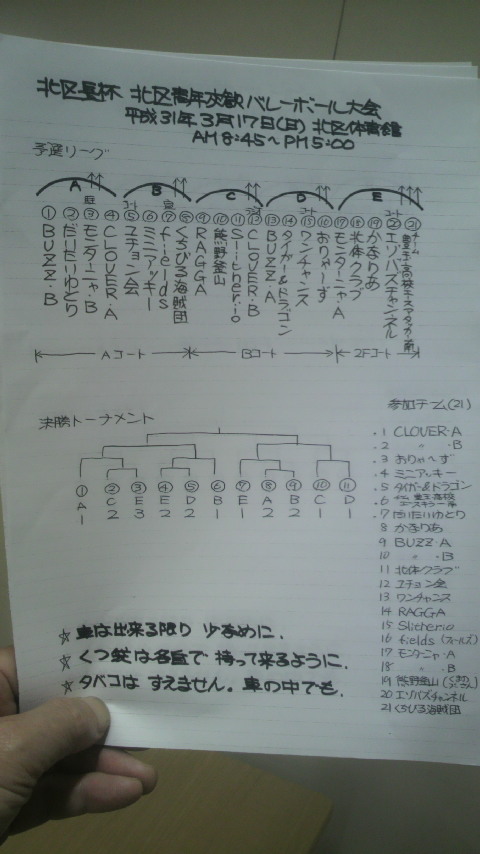 北区長杯 北区青年交歓バレーボール大会
平成31年3月17日(日) 北区体育館
AM8:45~PM5:00
予選リーグ
A B C D E
① BUZZ・B
② だいたいゆとり
③ モンターニャ・B
④ CLOVER・A
⑤ ユチョン会
⑥ ミニアッキー
⑦ fields
⑧ くちびる海賊団
⑨ RAGGA
⑩ 熊野釜山
⑪ Slitherio
⑫ CLOVER・B
⑬ BUZZ・A
⑭ タイガー&ドラゴン
⑮ ワンチャンス
⑯ おりゃーず
⑰ モンターニャ・A
⑱ 北体クラブ
⑲ かまりあ
⑳ エゾバズチャンネル
㉑
Aコート Bコート 2Fコート
決勝トーナメント
① ② ③ ④ ⑤ ⑥ ⑦ ⑧ ⑨ ⑩ ⑪
A C E E D B E A B C D
1 2 3 2 2 1 1 2 2 1 1
参加チーム(21)
1 CLOVER・A
2 〃 ・B
3 おりゃ~ず
4 ミニアッキー
5 タイガー&ドラゴン
6
7 だいたいゆとり
8 かまりあ
9 BUZZ・A
10 〃 ・B
11 北体クラブ
12 ユチョン会
13 ワンチャンス
14 RAGGA
15 Slitherio
16 fields (フィールズ)
17 モンターニャ・A
18 〃 ・B
19 熊野釜山
20 エゾバズチャンネル
21 くちびる海賊団
☆ 車は出来る限り 少なめに.
☆ くつ袋は各自で 持って来るように.
☆ タバコは すえません。車の中でも.